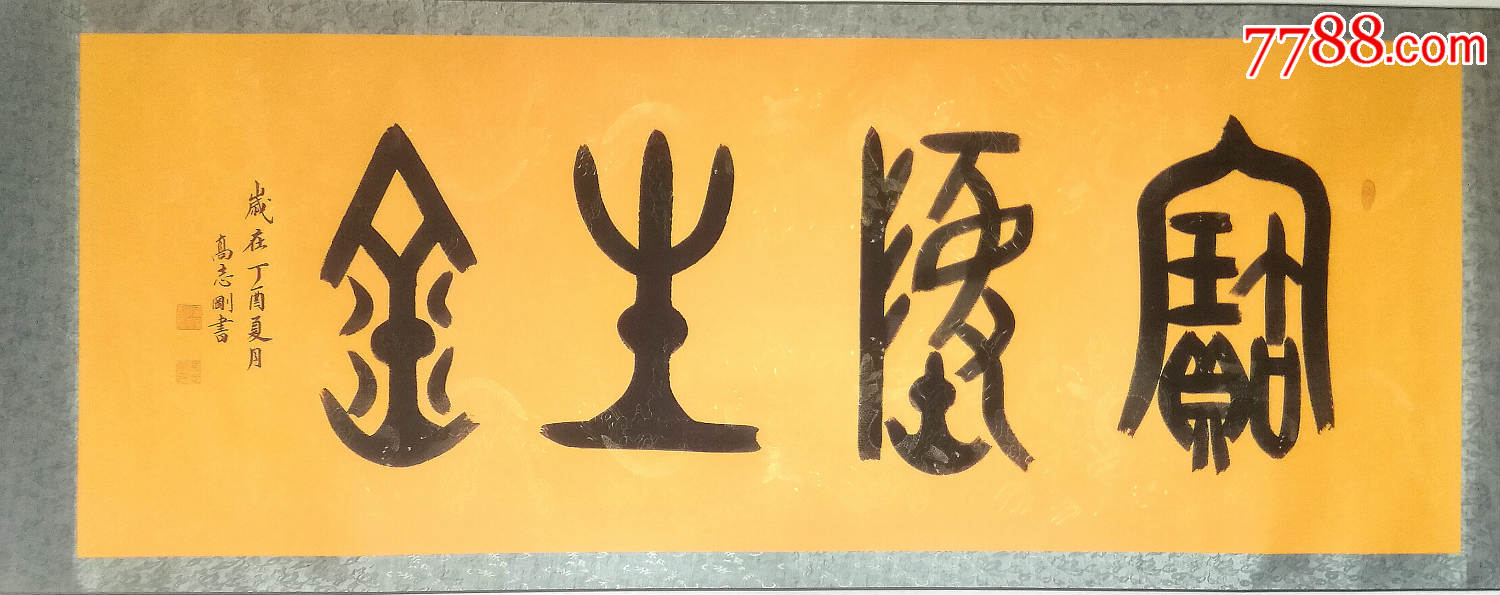 7788.com
寶墬生金
歲在丁酉夏月
高志剛書